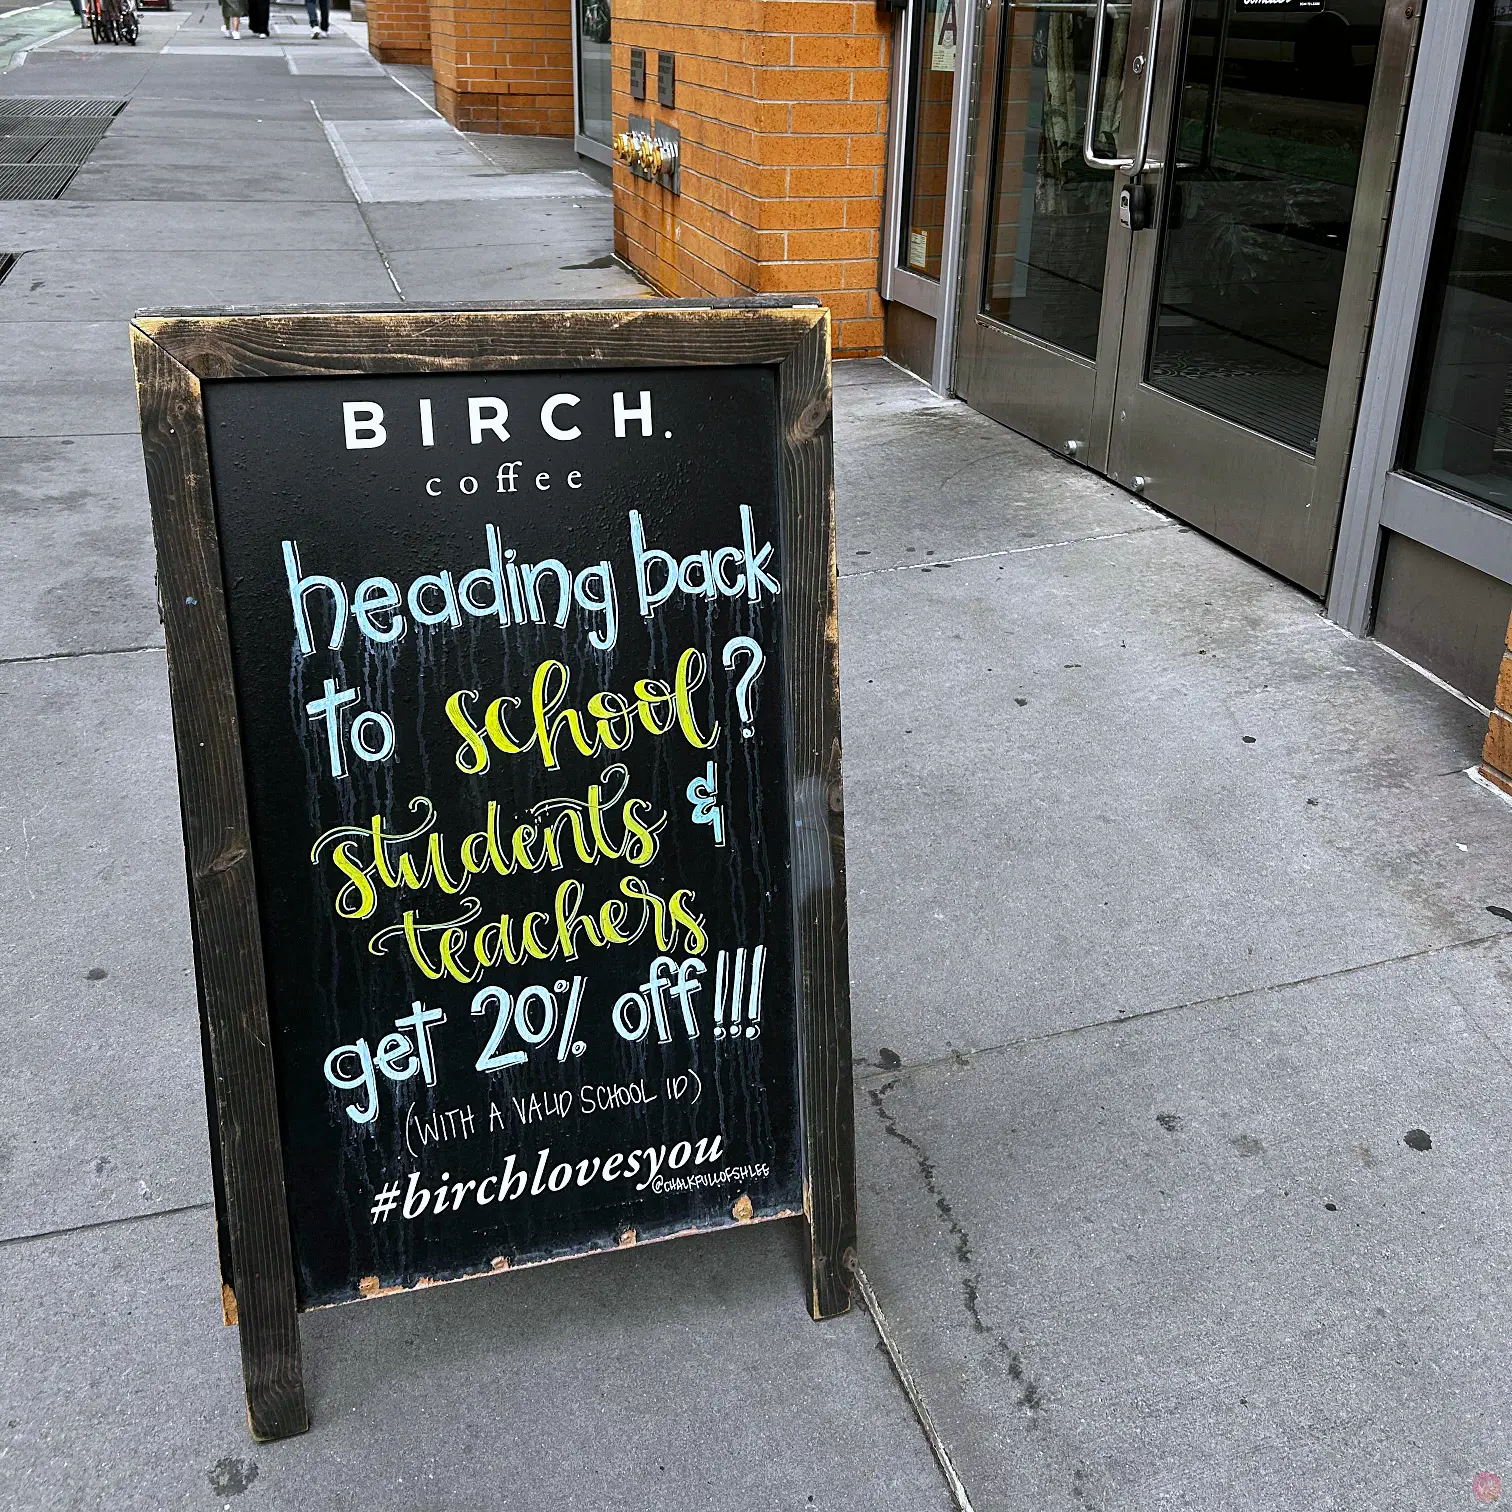 BIRCH.
coffee
heading back
to school?
students &
teachers
get 20% off!!!
(WITH A VALID SCHOOL ID)
#birchlovesyou
@CHALKFULLOFSHLEE
A